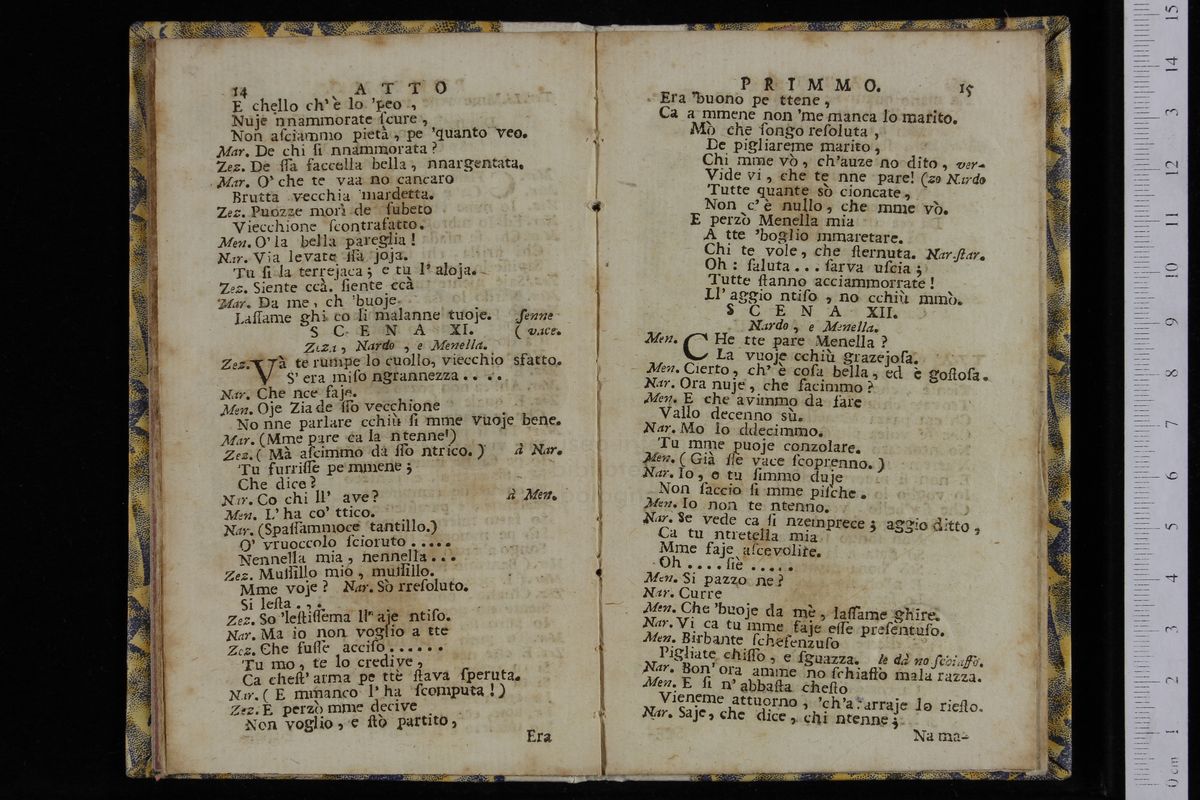 14 A T T O
E chello ch' è lo 'peo ,
Nuje nnammorate ſcure ,
Non aſciammo pietà , pe 'quanto veo.
Mar. De chi ſi nnammorata ?
Zez. De ſſa faccella bella , nnargentata.
Mar. O' che te vaa no cancaro
Brutta vecchia mardetta.
Zez. Puozze morì de ſubeto
Viecchione ſcontrafatto.
Men. O' la bella pareglia !
Nar. Via levate ſſa joja.
Tu ſi la terrejaca ; e tu l' aloja.
Zez. Siente ccà. ſiente ccà
Mar. Da me , ch 'buoje
Laſſame ghi co li malanne tuoje. ſenne
S C E N A XI. ( vace.
Zeza , Nardo , e Menella.
Zez. Và te rumpe lo cuollo, viecchio sfatto.
S' era miſo ngrannezza . . . .
Nar. Che nce faje.
Men. Oje Zia de ſſo vecchione
No nne parlare cchiù ſi mme vuoje bene.
Mar. (Mme pare ca la ntenne')
Zez. ( Mà aſcimmo da ſſo ntrico. ) à Nar.
Tu furriſſe pe mmene ;
Che dice ?
Nar. Co chi ll' ave ? à Men.
Men. L' ha co' ttico.
Nar. (Spaſſammoce tantillo.)
O' vruoccolo ſcioruto . . . . .
Nennella mia , nennella . . .
Zez. Muſſillo mio , muſſillo.
Mme voje ? Nar. Sò rreſoluto.
Si leſta . . .
Zez. So 'leſtiſſema ll' aje ntiſo.
Nar. Ma io non voglio a tte
Zez. Che fuſſe acciſo . . . . . .
Tu mo , te lo credive ,
Ca cheſt' arma pe ttè ſtava ſperuta.
Nar. ( E mmanco l' ha ſcomputa ! )
Zez. E perzò mme decive
Non voglio , e ſtò partito ,
Era
P R I M M O. 15
Era 'buono pe ttene ,
Ca a mmene non 'me manca lo marito.
Mò che ſongo reſoluta ,
De pigliareme marito ,
Chi mme vò , ch'auze no dito , ver-
Vide vi , che te nne pare! (zo Nardo
Tutte quante sò cioncate ,
Non c' è nullo , che mme vò.
E perzò Menella mia
A tte 'boglio mmaretare.
Chi te vole, che ſternuta. Nar. ſtar.
Oh : ſaluta . . . ſarva uſcia ;
Tutte ſtanno acciammorrate !
Ll' aggio ntiſo , no cchiù mmò.
S C E N A XII.
Nardo , e Menella.
Men. CHe tte pare Menella ?
La vuoje cchiù grazejoſa.
Men. Cierto, ch' è coſa bella, ed è goſtoſa.
Nar. Ora nuje, che facimmo ?
Men. E che avimmo da fare
Vallo decenno sù.
Nar. Mo lo ddecimmo.
Tu mme puoje conzolare.
Men. ( Già ſſe vace ſcoprenno. )
Nar. Io, e tu ſimmo duje
Non faccio ſi mme piſche .
Men. Io non te ntenno.
Nar. Se vede ca ſi nzemprece ; aggio ditto ,
Ca tu ntretella mia
Mme faje aſcevolire.
Oh . . . . ſiè . . . . .
Men. Si pazzo ne ?
Nar. Curre
Men. Che 'buoje da mè , laſſame ghire.
Nar. Vi ca tu mme faje eſſe preſentuſo.
Men. Birbante ſchefenzuſo
Pigliate chiſſo , e ſguazza. le dà no ſchiaffo.
Nar. Bon' ora amme no ſchiaffo mala razza.
Men. E ſi n' abbaſta cheſto
Vieneme attuorno , 'ch'a arraje lo rieſto.
Nar. Saje, che dice , chi ntenne ;
Na ma-